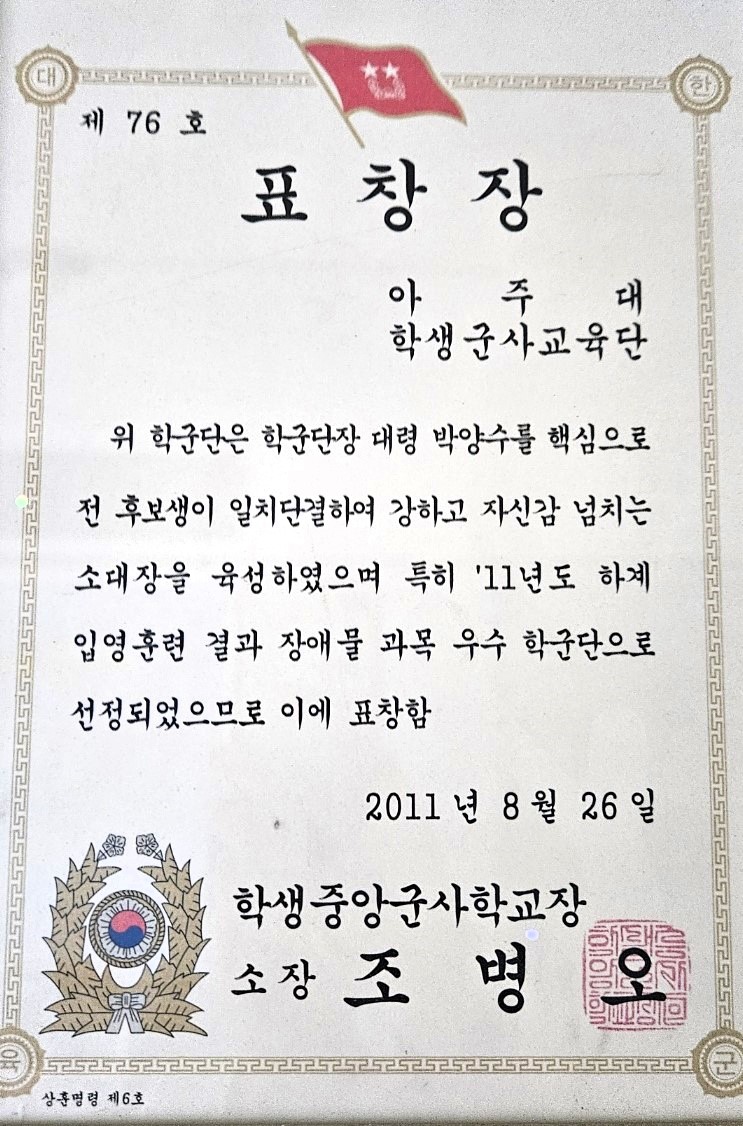 대 한
제 76 호
표 창 장
아 주 대
학생군사교육단
위 학군단은 학군단장 대령 박양수를 핵심으로
전 후보생이 일치단결하여 강하고 자신감 넘치는
소대장을 육성하였으며 특히 '11년도 하계
입영훈련 결과 장애물 과목 우수 학군단으로
선정되었으므로 이에 표창함
2011년 8월 26일
학생중앙군사학교장
소장 조 병 오
육 군
상훈명령 제6호